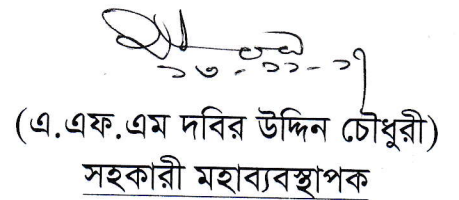 (এ.এফ.এম দবির উদ্দিন চৌধুরী)
সহকারী মহাব্যবস্থাপক